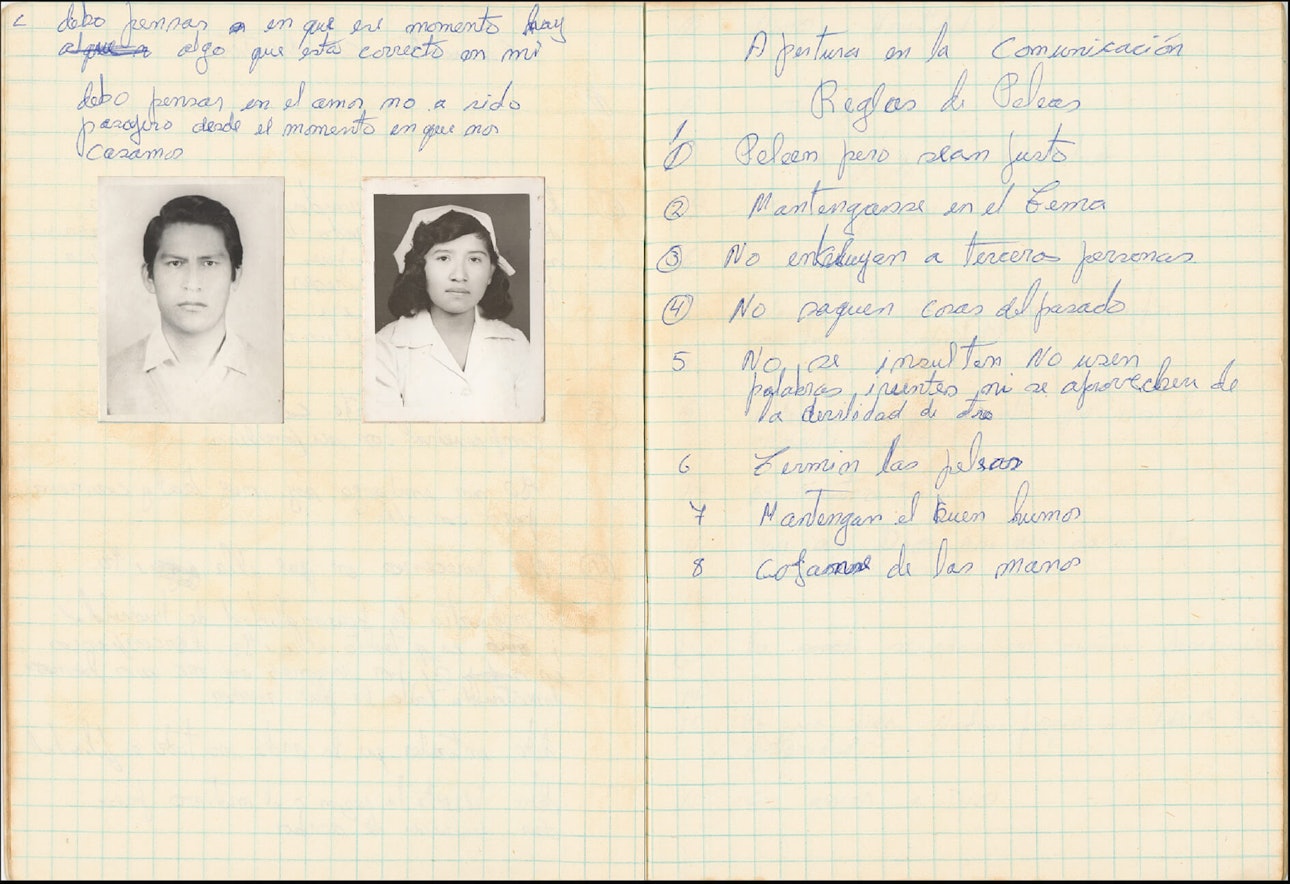 debo pensar en que ese momento hay
algo que está correcto en mi
debo pensar en el amor no a sido
pasagero desde el momento en que nos
casamos
Apertura en la Comunicación
Reglas de Peleas
1 Peleen pero sean justo
2 Mantenganse en el tema
3 No a terceras personas
4 No saquen cosas del pasado
5 No se insulten No usen
palabras ni se aprovechen de
la de otro
6 Termin las peleas
7 Mantengan el buen humor
8 de las manos